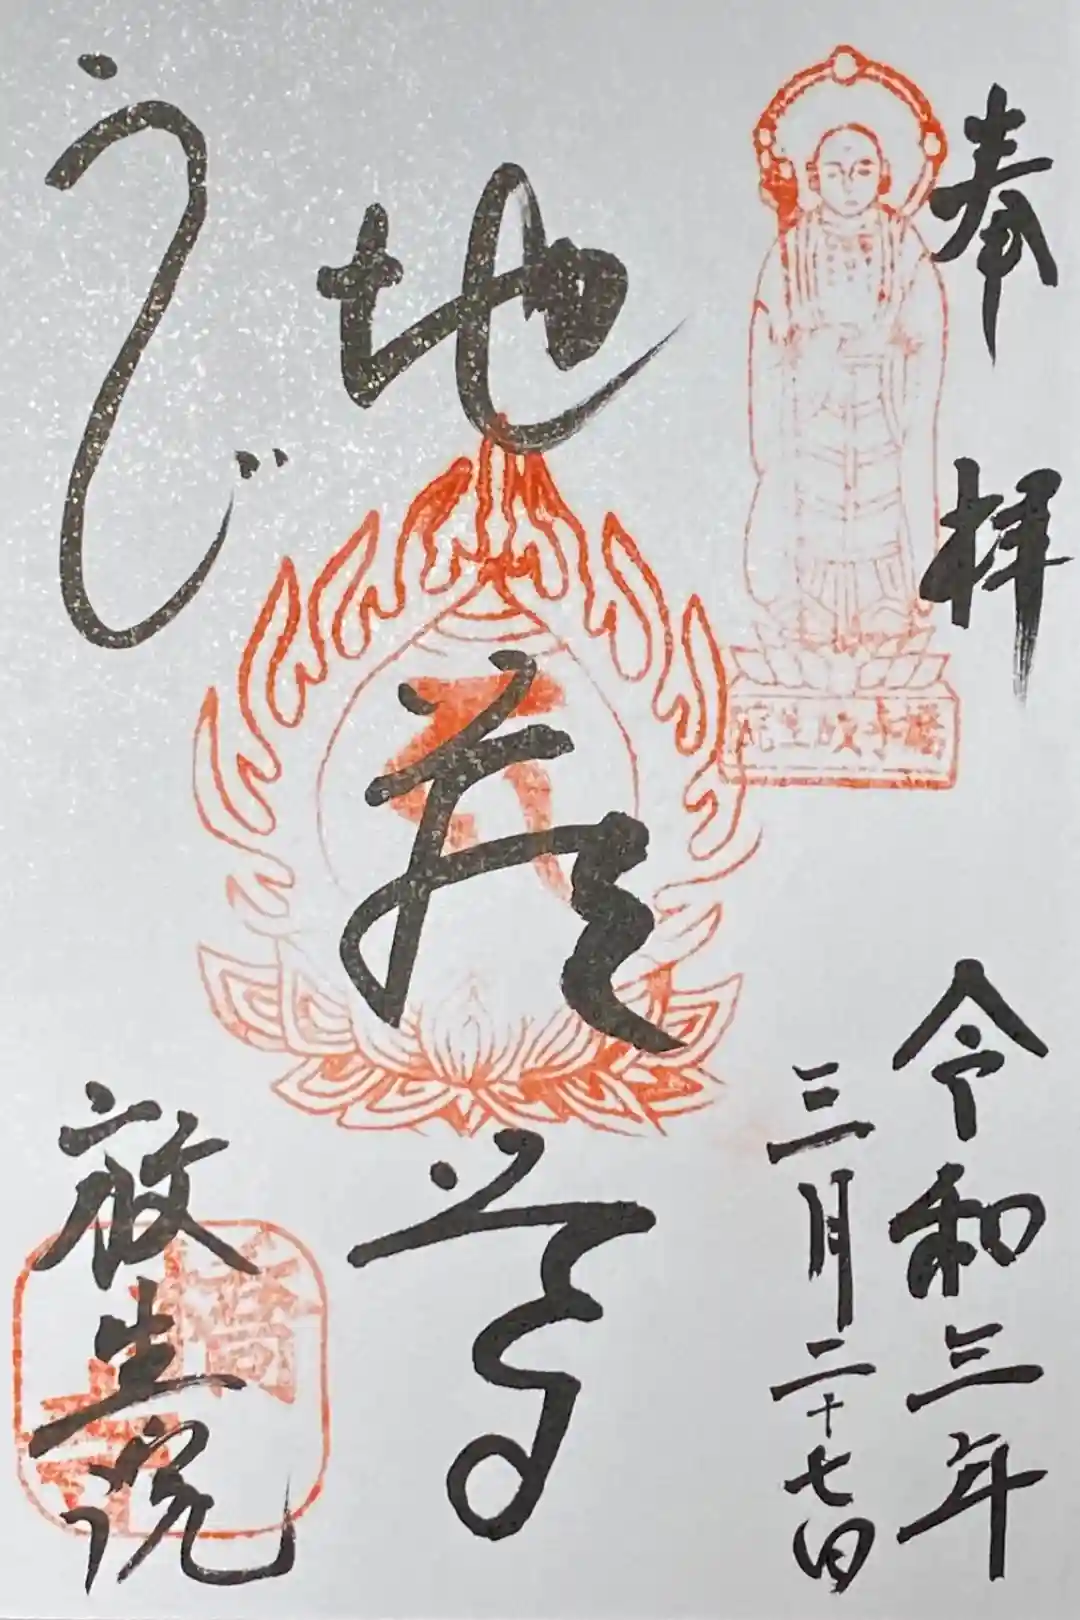 奉拝
令和三年
三月二十七日
橋寺放生院
地蔵尊
うじ
放生院
橋寺